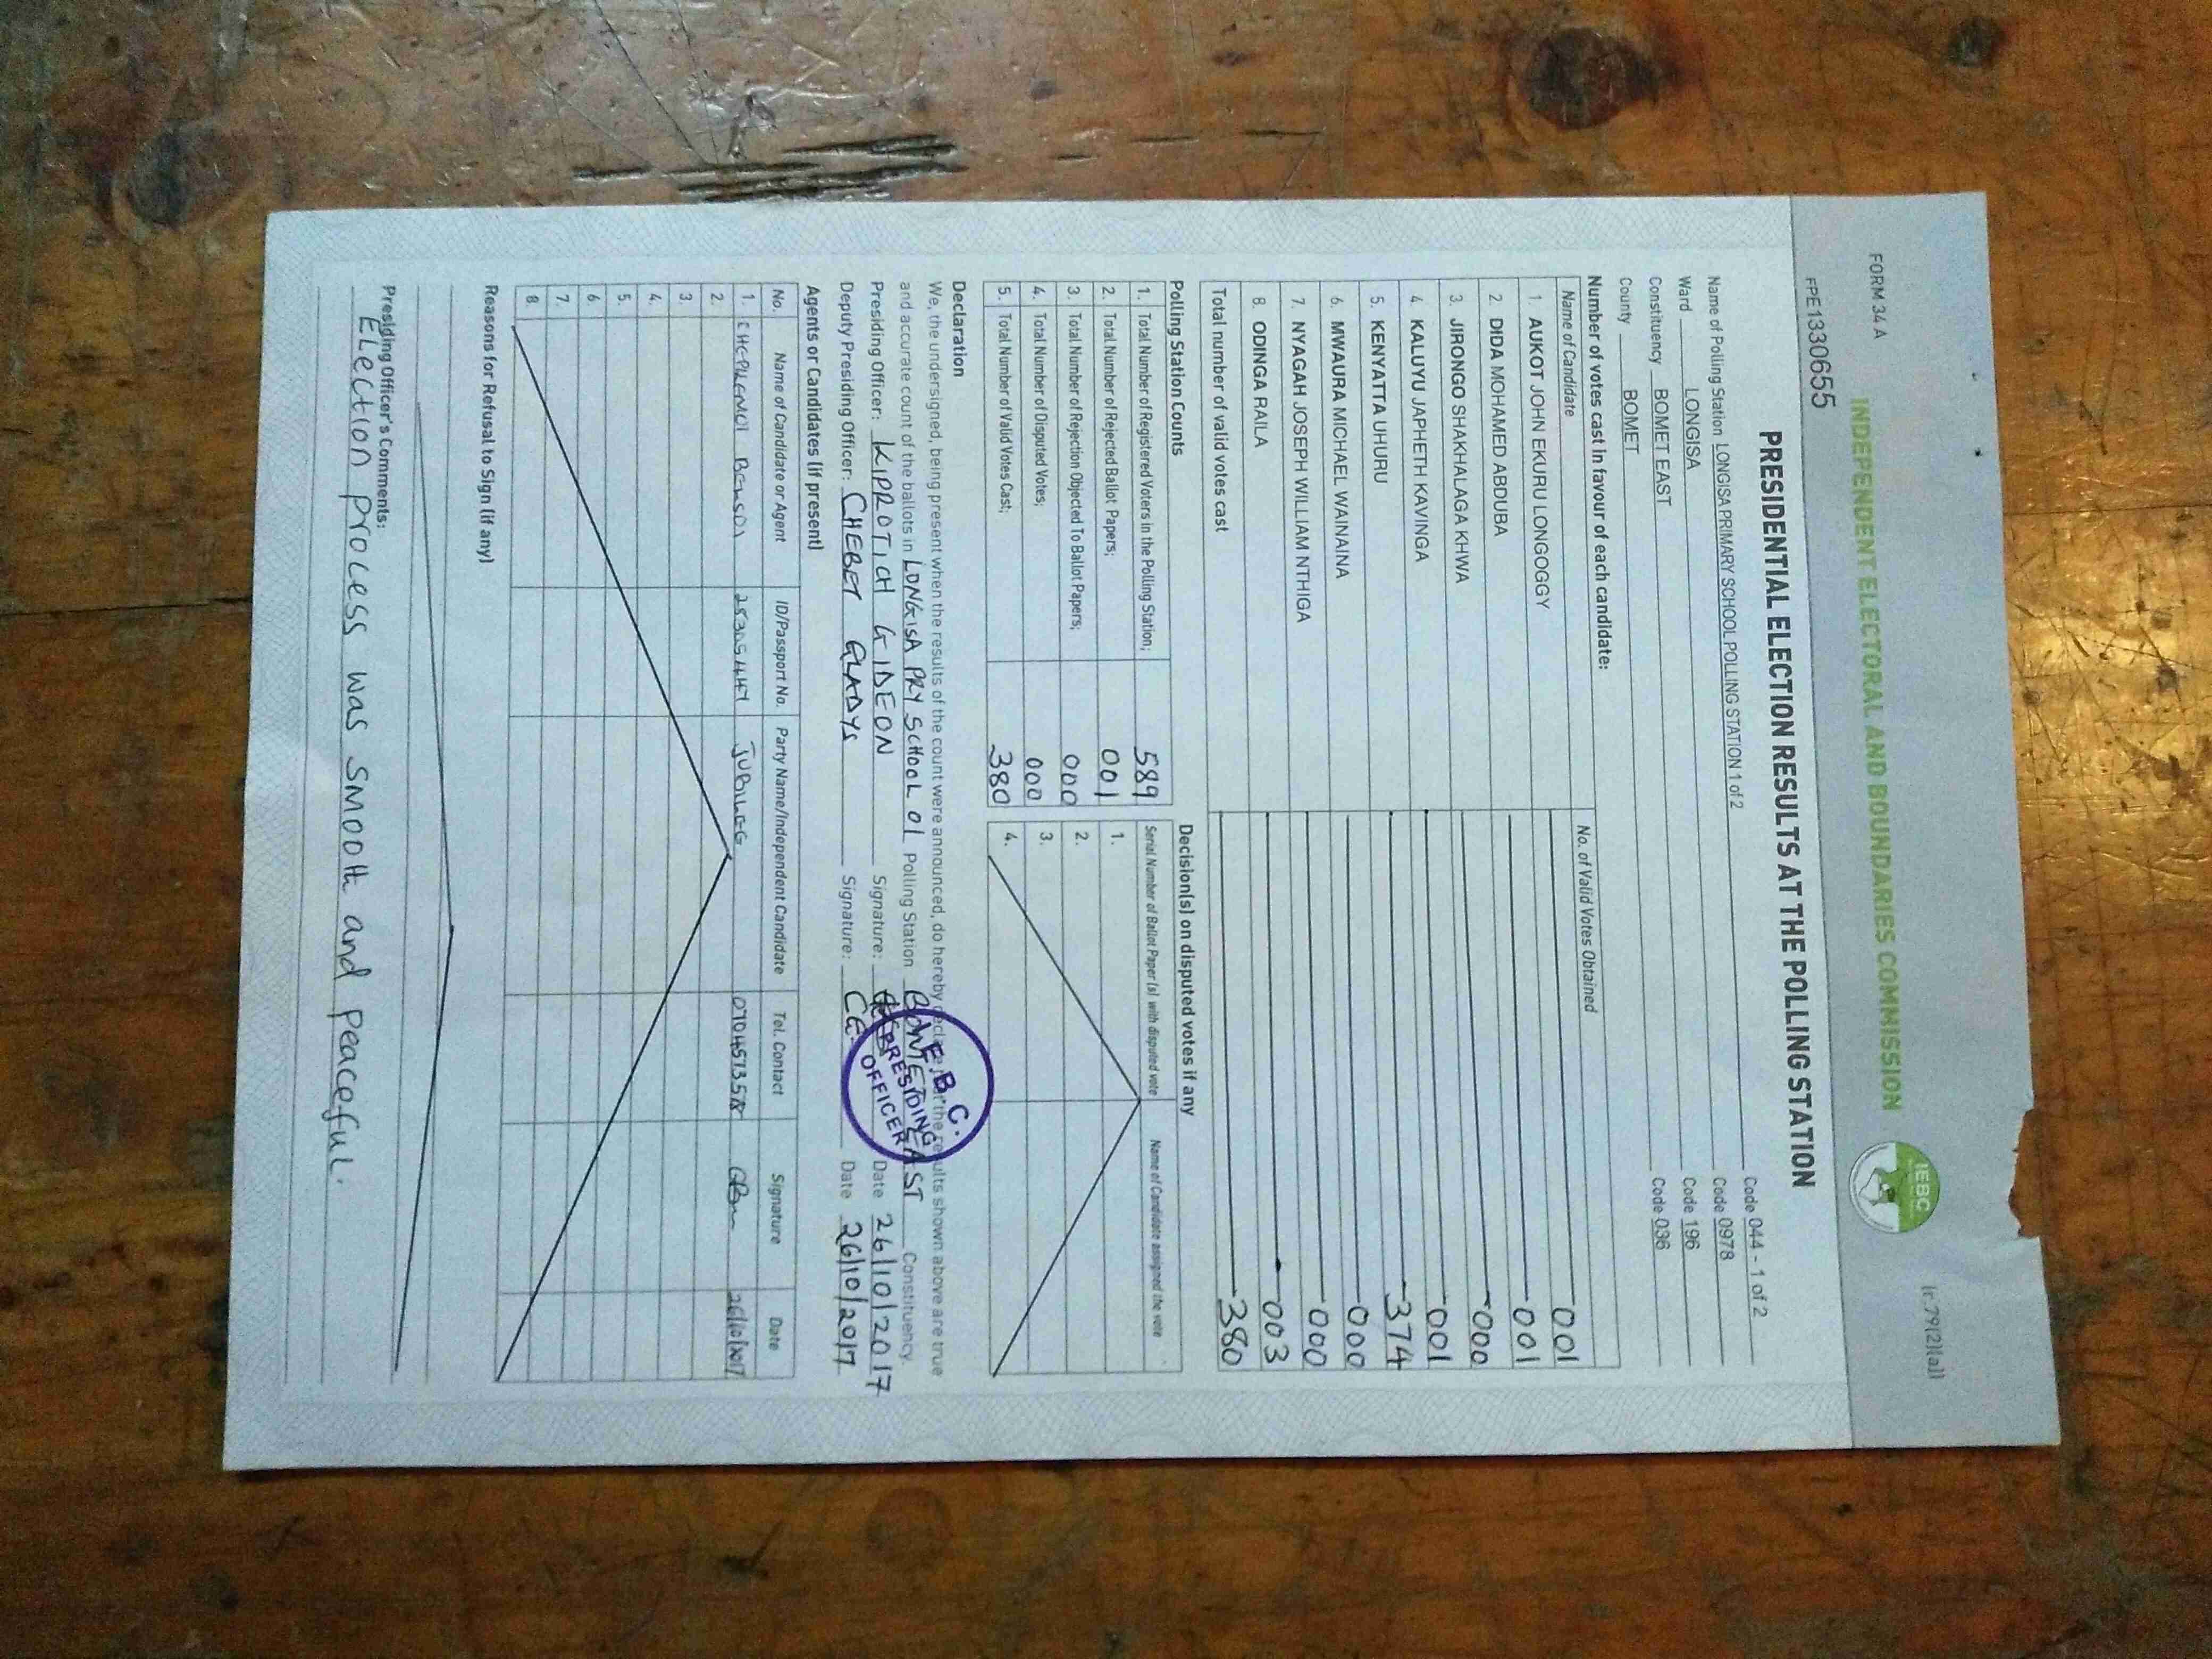 FORM 34 A
(r.79(2)(a))
INDEPENDENT ELECTORAL AND BOUNDARIES COMMISSION
IEBC
FPE1330655
PRESIDENTIAL ELECTION RESULTS AT THE POLLING STATION
Name of Polling Station LONGISA PRIMARY SCHOOL POLLING STATION 1 of 2 Code 044 - 1 of 2
Ward LONGISA Code 0978
Constituency BOMET EAST Code 196
County BOMET Code 036
Number of votes cast in favour of each candidate:
Name of Candidate No. of Valid Votes Obtained
1. AUKOT JOHN EKURU LONGOGGY 001
2. DIDA MOHAMED ABDUBA 001
3. JIRONGO SHAKHALAGA KHWA 000
4. KALUYU JAPHETH KAVINGA 001
5. KENYATTA UHURU 374
6. MWAURA MICHAEL WAINAINA 000
7. NYAGAH JOSEPH WILLIAM NTHIGA 000
8. ODINGA RAILA 003
Total number of valid votes cast 380
Polling Station Counts
1. Total Number of Registered Voters in the Polling Station; 589
2. Total Number of Rejected Ballot Papers; 001
3. Total Number of Rejection Objected To Ballot Papers; 000
4. Total Number of Disputed Votes; 000
5. Total Number of Valid Votes Cast; 380
Decision(s) on disputed votes if any
Serial Number of Ballot Paper (s) with disputed vote Name of Candidate assigned the vote
1.
2.
3.
4.
Declaration
We, the undersigned, being present when the results of the count were announced, do hereby declare that the results shown above are true
and accurate count of the ballots in LONGISA PRY SCHOOL 01 Polling Station BOMET EAST Constituency.
Presiding Officer: KIPROTICH GIDEON Signature: Date 26/10/2017
Deputy Presiding Officer: CHEBET GLADYS Signature: Date 26/10/2017
PRESIDING
OFFICER
Agents or Candidates (if present)
No. Name of Candidate or Agent ID/Passport No. Party Name/Independent Candidate Tel. Contact Signature Date
1. JUBILEE 26/10/2017
2.
3.
4.
5.
6.
7.
8.
Reasons for Refusal to Sign (if any)
Presiding Officer's Comments:
Election process was smooth and peaceful.